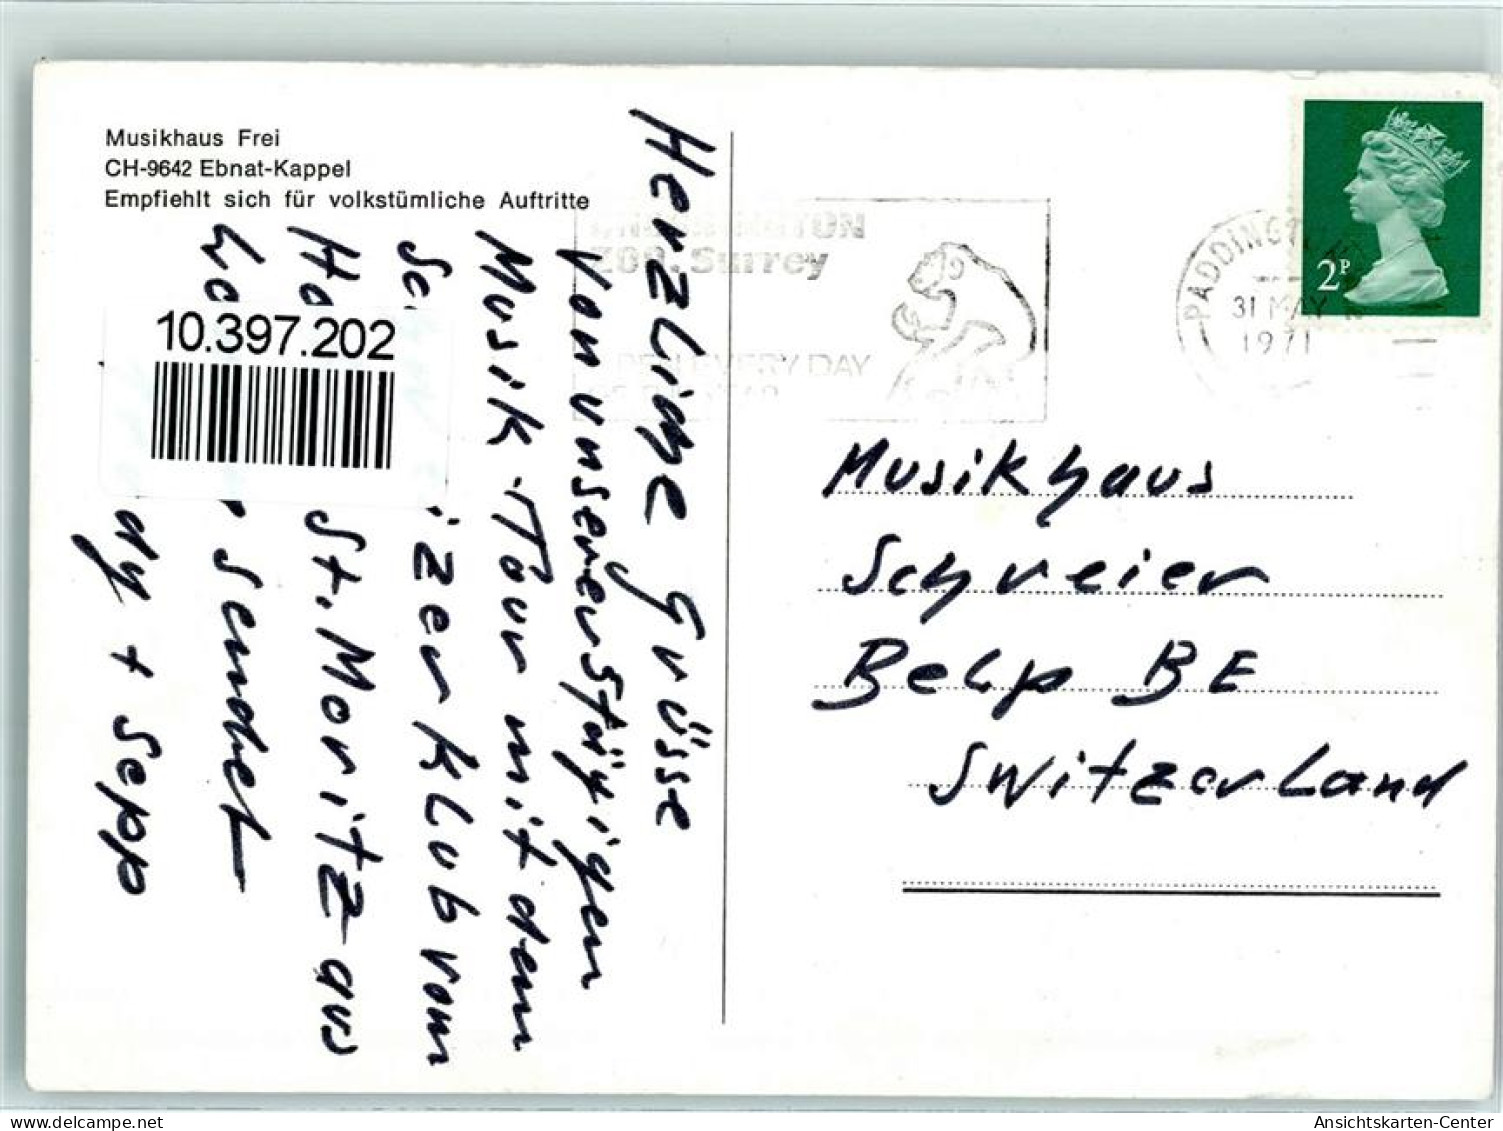 Musikhaus Frei
CH-9642 Ebnat-Kappel
Empfiehlt sich für volkstümliche Auftritte
Herzliche Grüsse
von unserer 5tätigen
Musik-Tour mit dem
zer Klub vom
St. Moritz aus
sendet
+ Sepp
10.397.202
ZOO. Surrey
OPEN EVERY DAY
PADDINGTON
31 MAY
1971
2P
Musikhaus
Schreier
Belp BE
Switzerland
www.delcampe.net
Ansichtskarten-Center